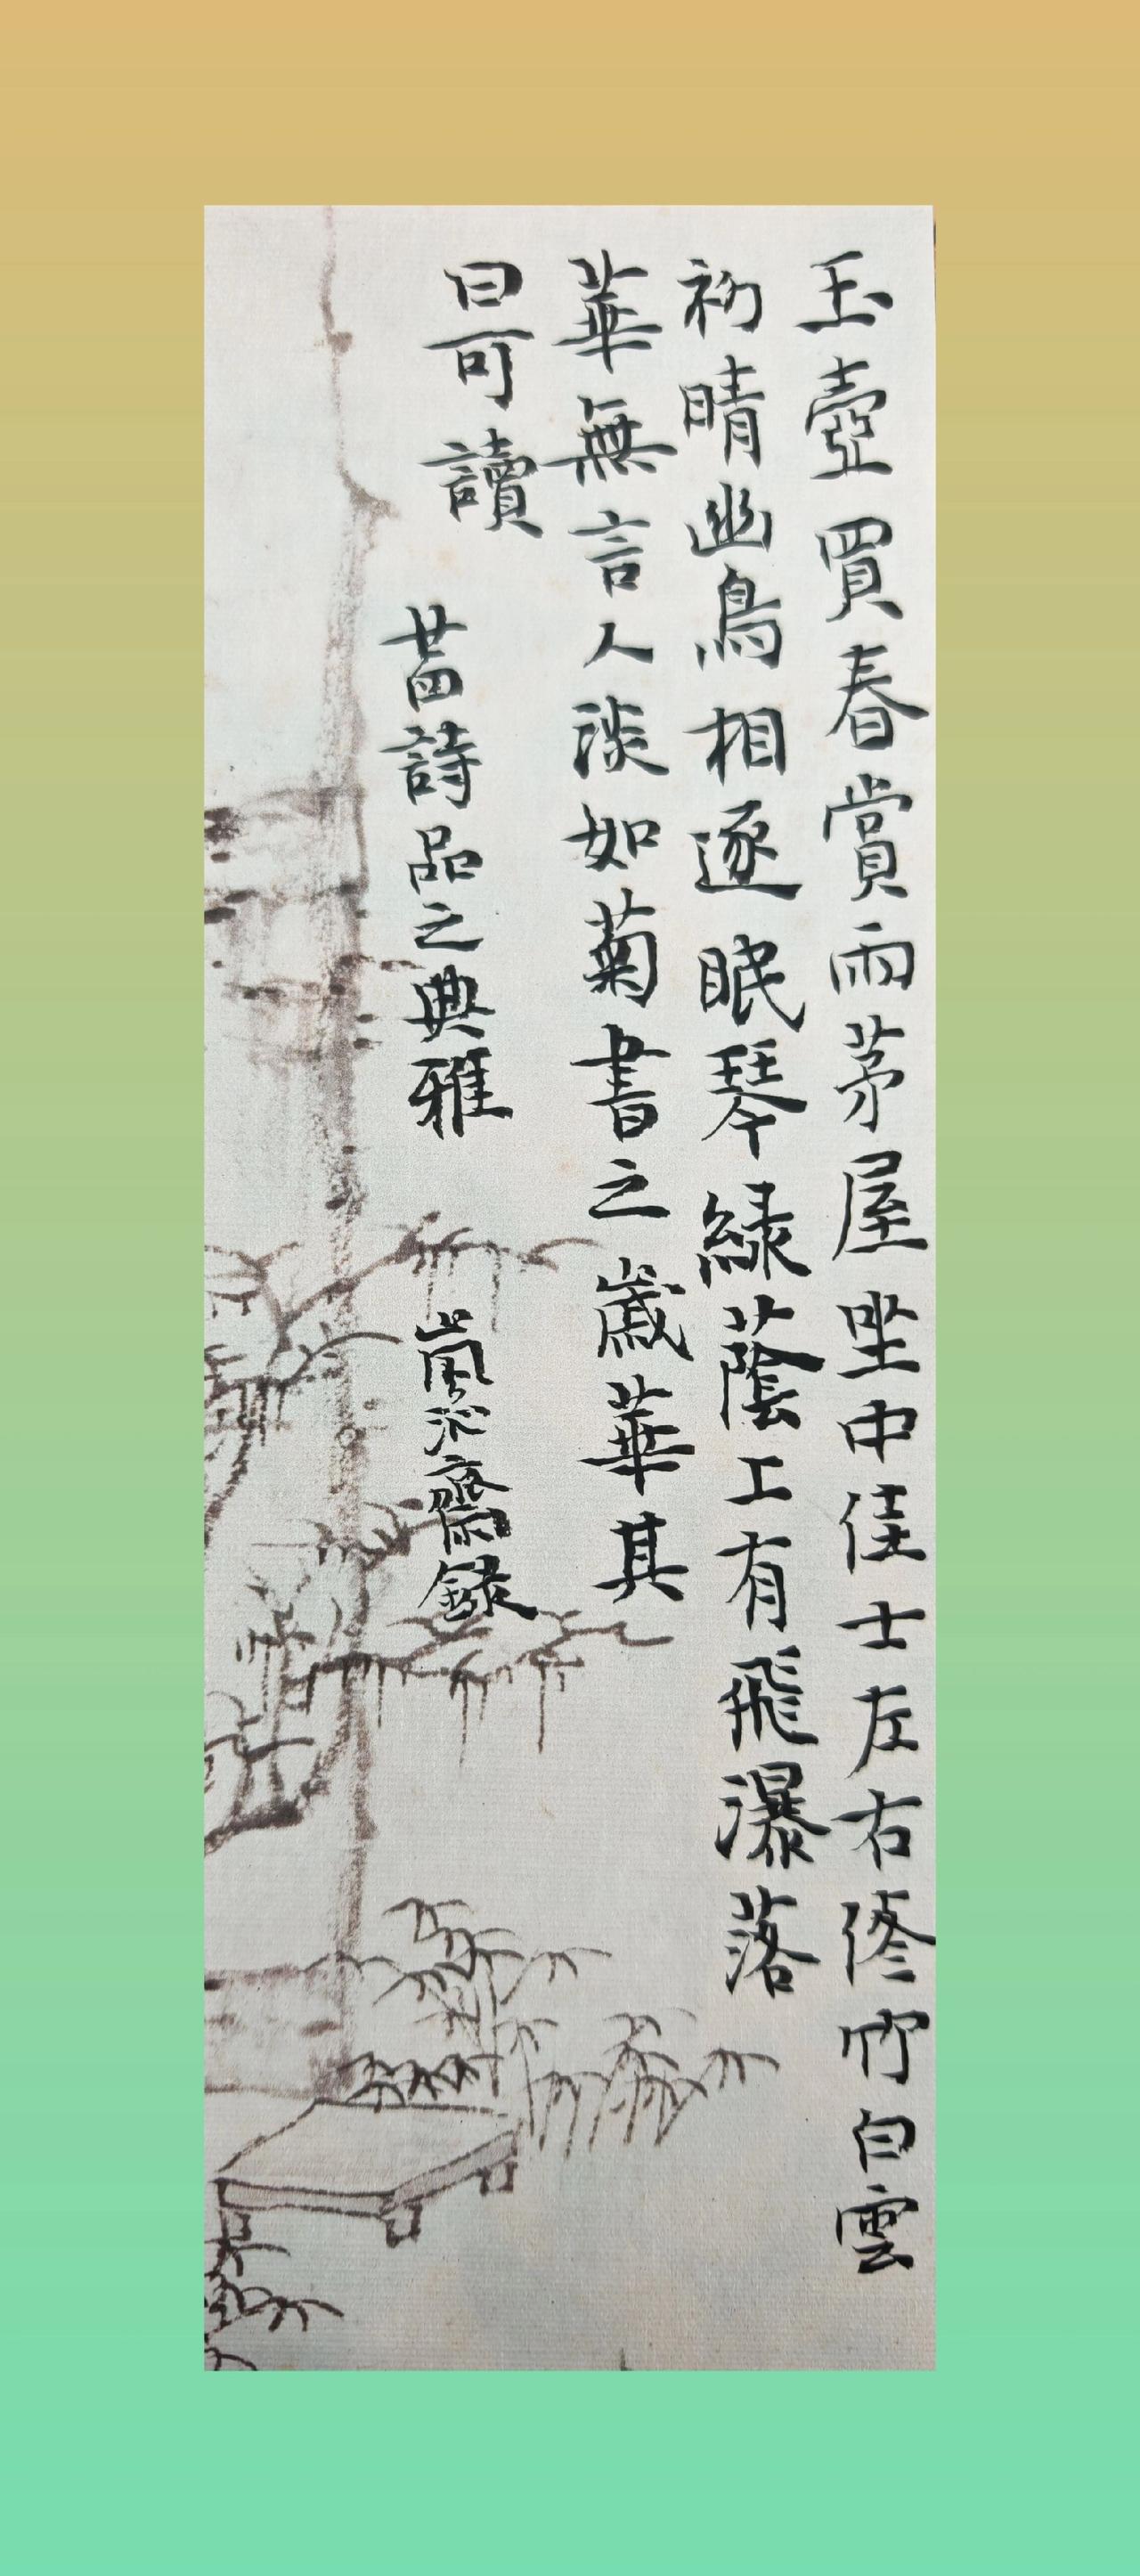 玉壺買春賞雨茅屋坐中佳士左右修竹白雲
初晴幽鳥相逐眠琴綠蔭上有飛瀑落
華無言人淡如菊書之歲華其
曰可讀
廿四詩品之典雅 嵐沁齋錄